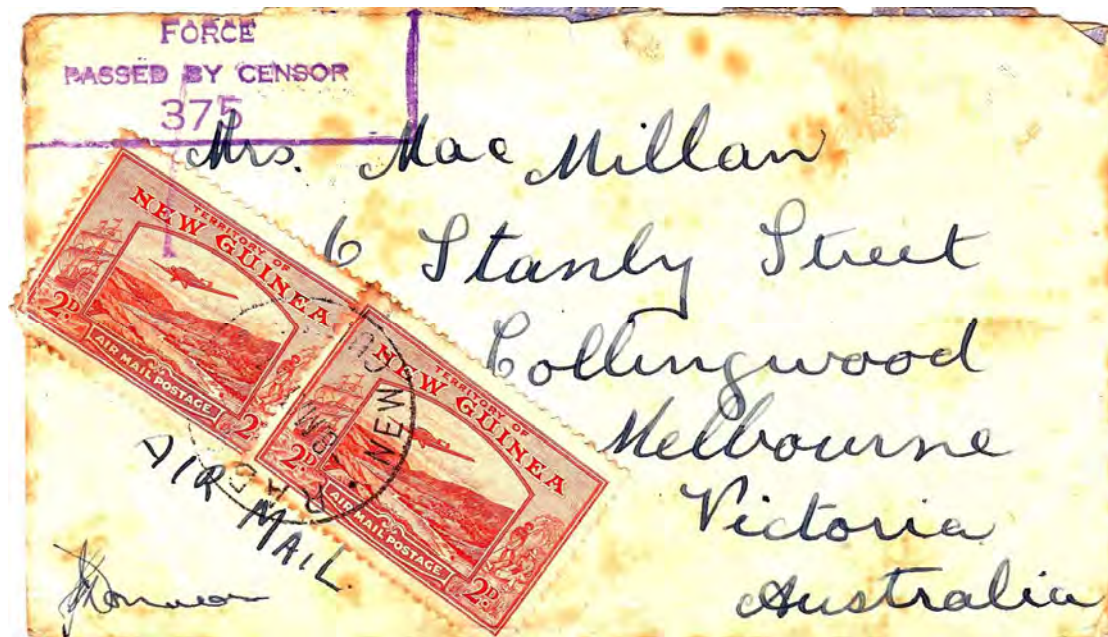 FORCE
PASSED BY CENSOR
375
Mrs. Mac Millan
6 Stanly Street
Collingwood
Melbourne
Victoria
Australia
TERRITORY OF
NEW GUINEA
2D. 2D.
AIR MAIL POSTAGE
TERRITORY OF
NEW GUINEA
2D. 2D.
AIR MAIL POSTAGE
NEW
AIR MAIL.